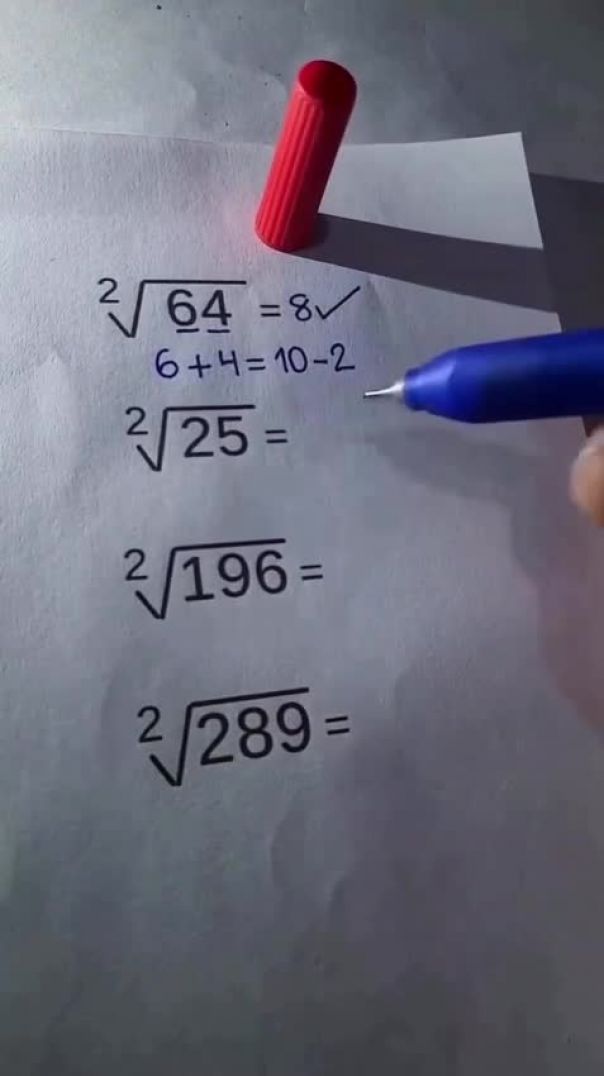 ²√64 = 8✓
6+4=10-2
²√25 =
²√196 =
²√289 =